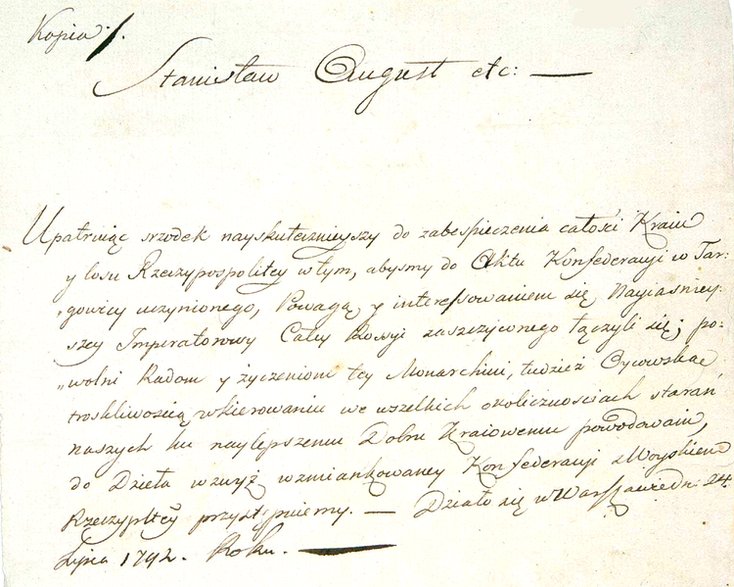 Kopia /.
Stanisław August etc: —
Upatruiąc srzodek nayskutecznieyszy do zabespieczenia całości Kraiu
y losu Rzeczypospolitey w tym, abysmy do Aktu Konfederacyi w Tar:
„gowicy uczynionego, Powagą y interessowaniem się Nayiaśniey:
szey Imperatorowy Całey Rossyi zaszczyconego łączyli się; po:
„wolni Radom y życzeniom tey Monarchini, tudzież Oycowską
troskliwością w kierowaniu we wszelkich okolicznościach starań
naszych ku naylepszemu Dobru Kraiowemu powodowani,
do Dzieła wzwyż wzmiankowaney Konfederacyi z Woyskiem
Rzeczypltey przystępuiemy. — Działo się w Warszawie dn: 24.
Lipca 1792. Roku. —